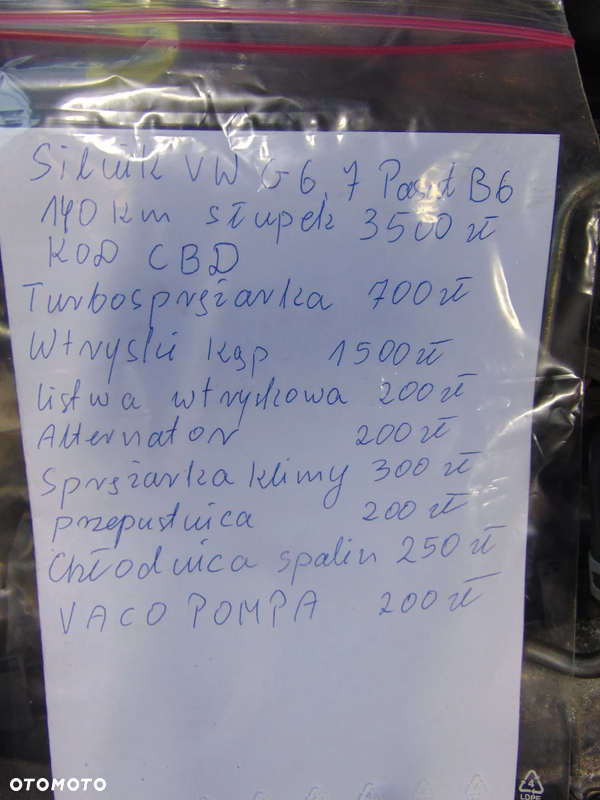 Silnik VW G6, 7 Pasat B6
140 km słupek 3500 zł
KOD CBD
Turbosprężarka 700 zł
Wtryski kąp 1500 zł
listwa wtryskowa 200 zł
Alternator 200 zł
Sprężarka klimy 300 zł
przepustnica 200 zł
Chłodnica spalin 250 zł
VACO POMPA 200 zł
OTOMOTO
4
LDPE